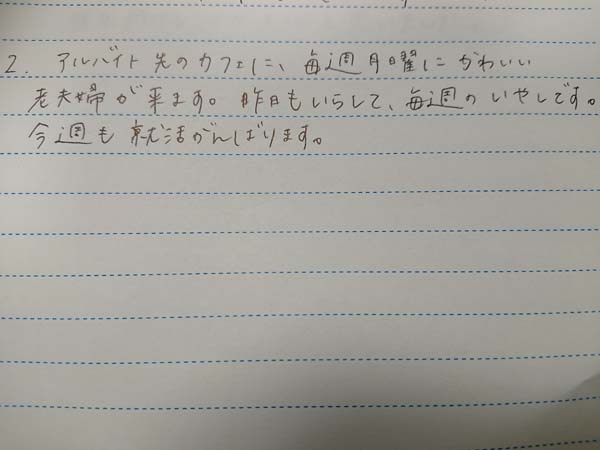 2. アルバイト先のカフェに、毎週月曜にかわいい
老夫婦が来ます。昨日もいらして、毎週のいやしです。
今週も就活がんばります。